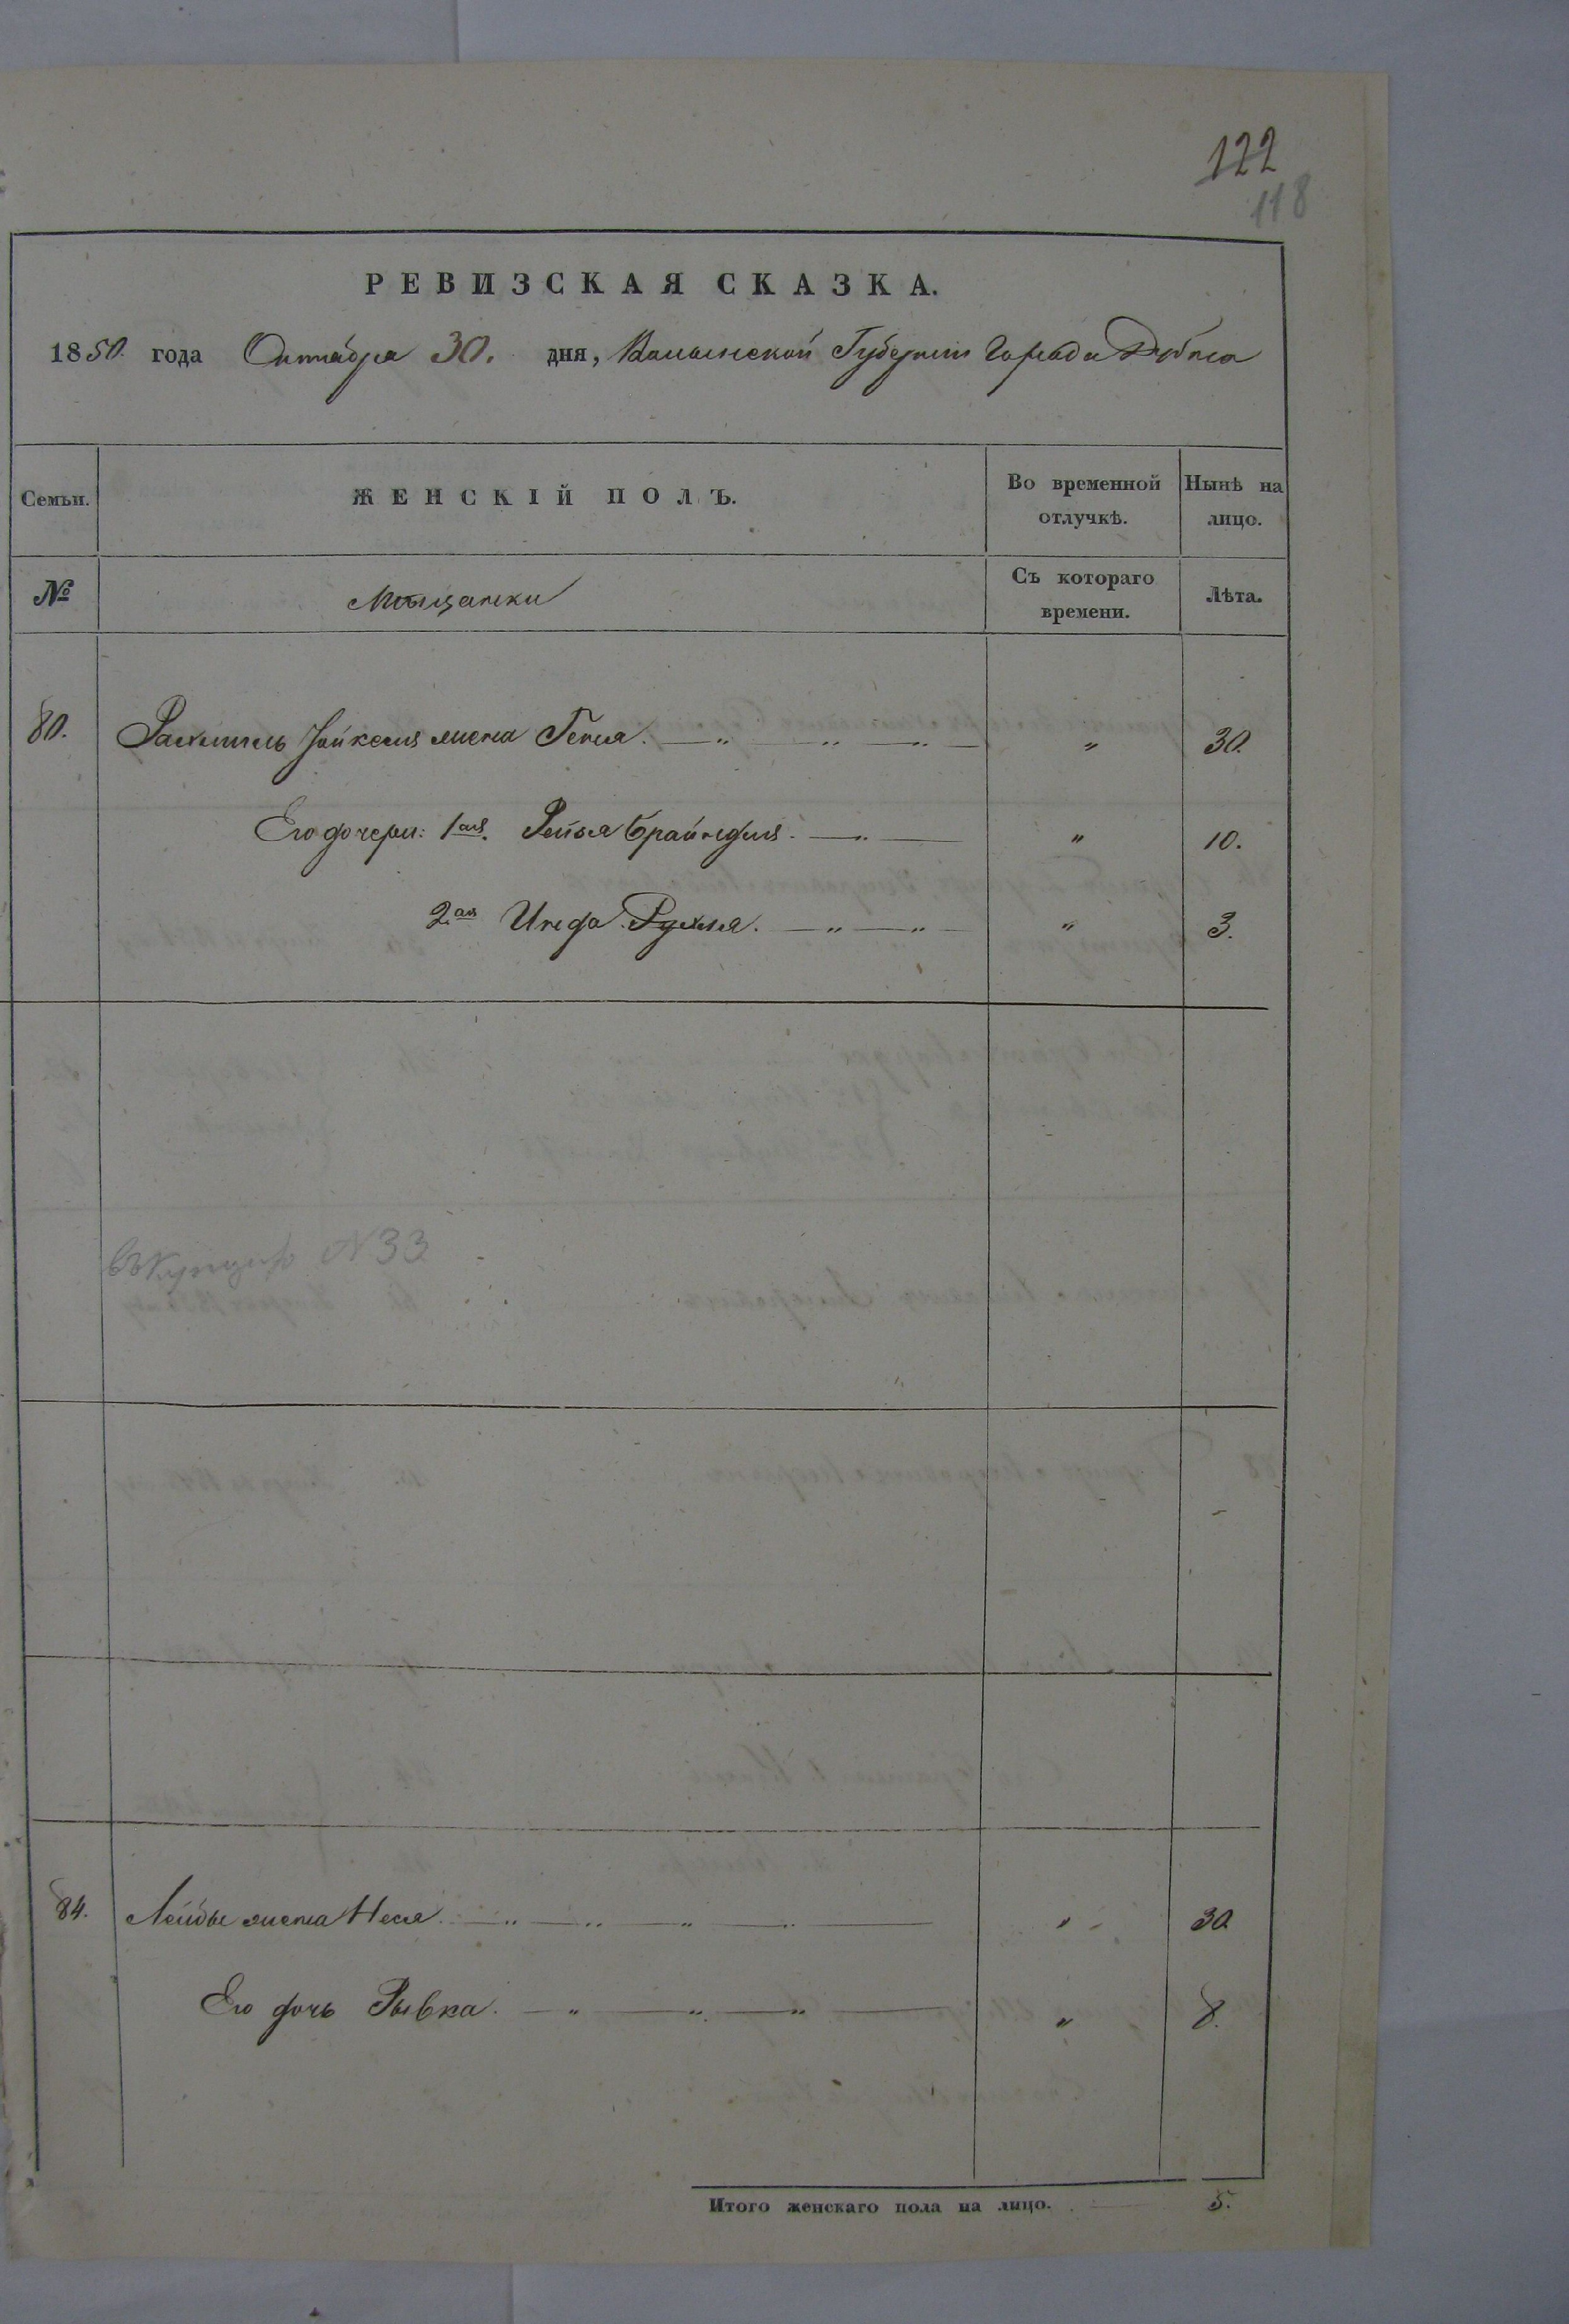 122
118
РЕВИЗСКАЯ СКАЗКА.
1850. года Октября 30. дня, Волынской Губернии Города Дубна
Семьи.
ЖЕНСКІЙ ПОЛЪ.
Во временной отлучкѣ.
Нынѣ на лицо.
№
Мѣщанки
Съ котораго времени.
Лѣта.
80. жена Геня. — „ — „ — „ — „ 30.
Его дочери: 1ая. Рейзя Брайндля. — „ — „ 10.
2ая Инда Рухля. — „ — „ — „ 3.
въ купцахъ N 33
84. Лейбы жена Неся. — „ — „ — „ — „ — „ 30
Его дочь Рывка. — „ — „ — „ — „ 8.
Итого женскаго пола на лицо. 5.